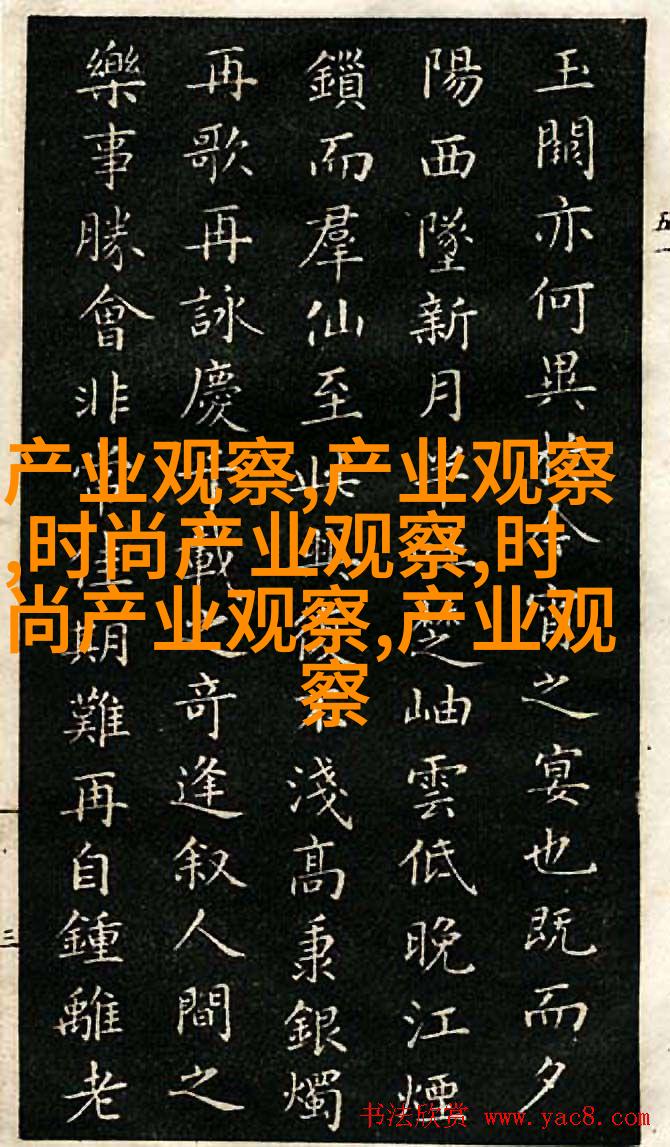 玉闕亦何異今宵之宴也既而夕
陽西墜新月楚岫雲低晚江煙
鎖而羣仙至此興復不淺高秉銀燭
再歌再詠慶千載之奇逢叙人間之
樂事勝會非常佳期難再自鍾離老
产业观察,产业观察
,时尚产业观察,时
尚产业观察,产业观
察
五
三
书法欣赏 www.yac8.com